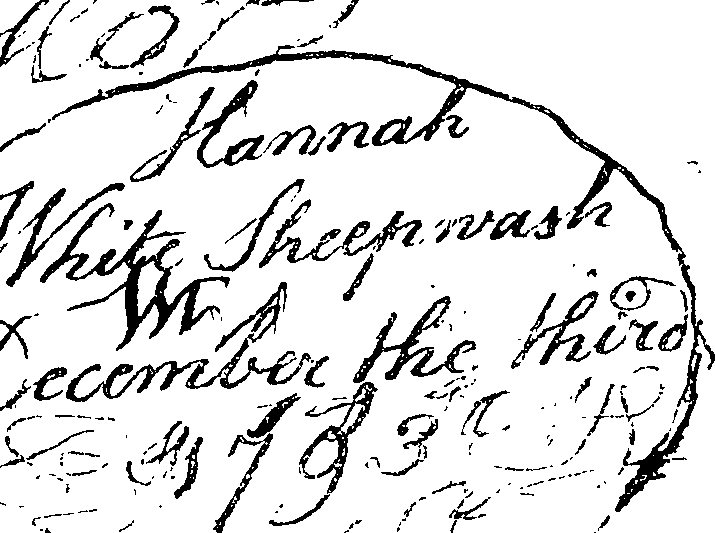 Hannah
White Sheepwash
December the third
1793